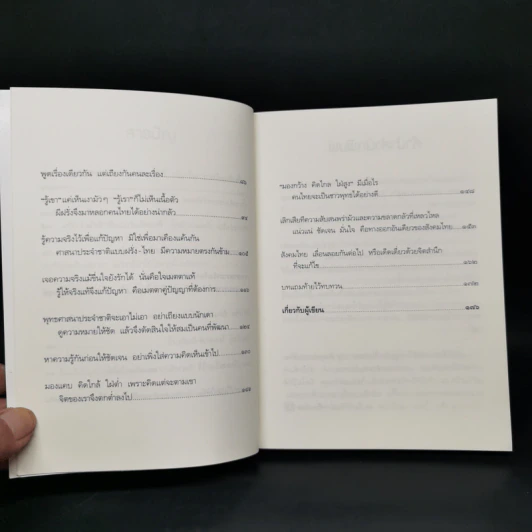 พูดเรื่องเดียวกัน แต่เถียงกันคนละเรื่อง
"รู้เรา" แต่เห็นเงามัวๆ "รู้เขา" ก็ไม่เห็นเนื้อตัว
มีฝรั่งจึงมาหลอกคนไทยได้อย่างน่ากลัว
รู้ความจริงไว้เพื่อแก้ปัญหา มิใช่เพื่อมาเคืองแค้นกัน
ศาสนาประจำชาติแบบฝรั่ง-ไทย มีความหมายตรงกันข้าม
เจอความจริงแม้ขื่นใจยังรักได้ นั่นคือใจเมตตาแท้
รู้ให้จริงแท้จึงแก้ปัญหา คือเมตตาคู่ปัญญาที่ต้องการ
พุทธศาสนาประจำชาติจะเอาไม่เอา อย่าเถียงแบบนักเดา
ดูความหมายให้ชัด แล้วจึงตัดสินใจให้สมเป็นคนที่พัฒนา
หาความรู้กันก่อนให้ชัดเจน อย่าเพิ่งใส่ความคิดเห็นเข้าไป
มองแคบ คิดใกล้ ใฝ่ต่ำ เพราะคิดแต่จะตามเขา
จิตของเราจึงตกต่ำลงไป
"มองกว้าง คิดไกล ใฝ่สูง" มีเมื่อไร
คนไทยจะเป็นชาวพุทธได้อย่างดี
เลิกเสียทีความสับสนพร่ามัวและความขลาดกลัวที่เหลวไหล
แน่วแน่ ชัดเจน มั่นใจ คือทางออกอันเดียวของสังคมไทย
สังคมไทย เลื่อนลอยกันต่อไป หรือคิดเดี๋ยวด้วยจิตสำนึก
ที่จะแก้ไข
บทแถมท้ายไว้ทบทวน
เกี่ยวกับผู้เขียน